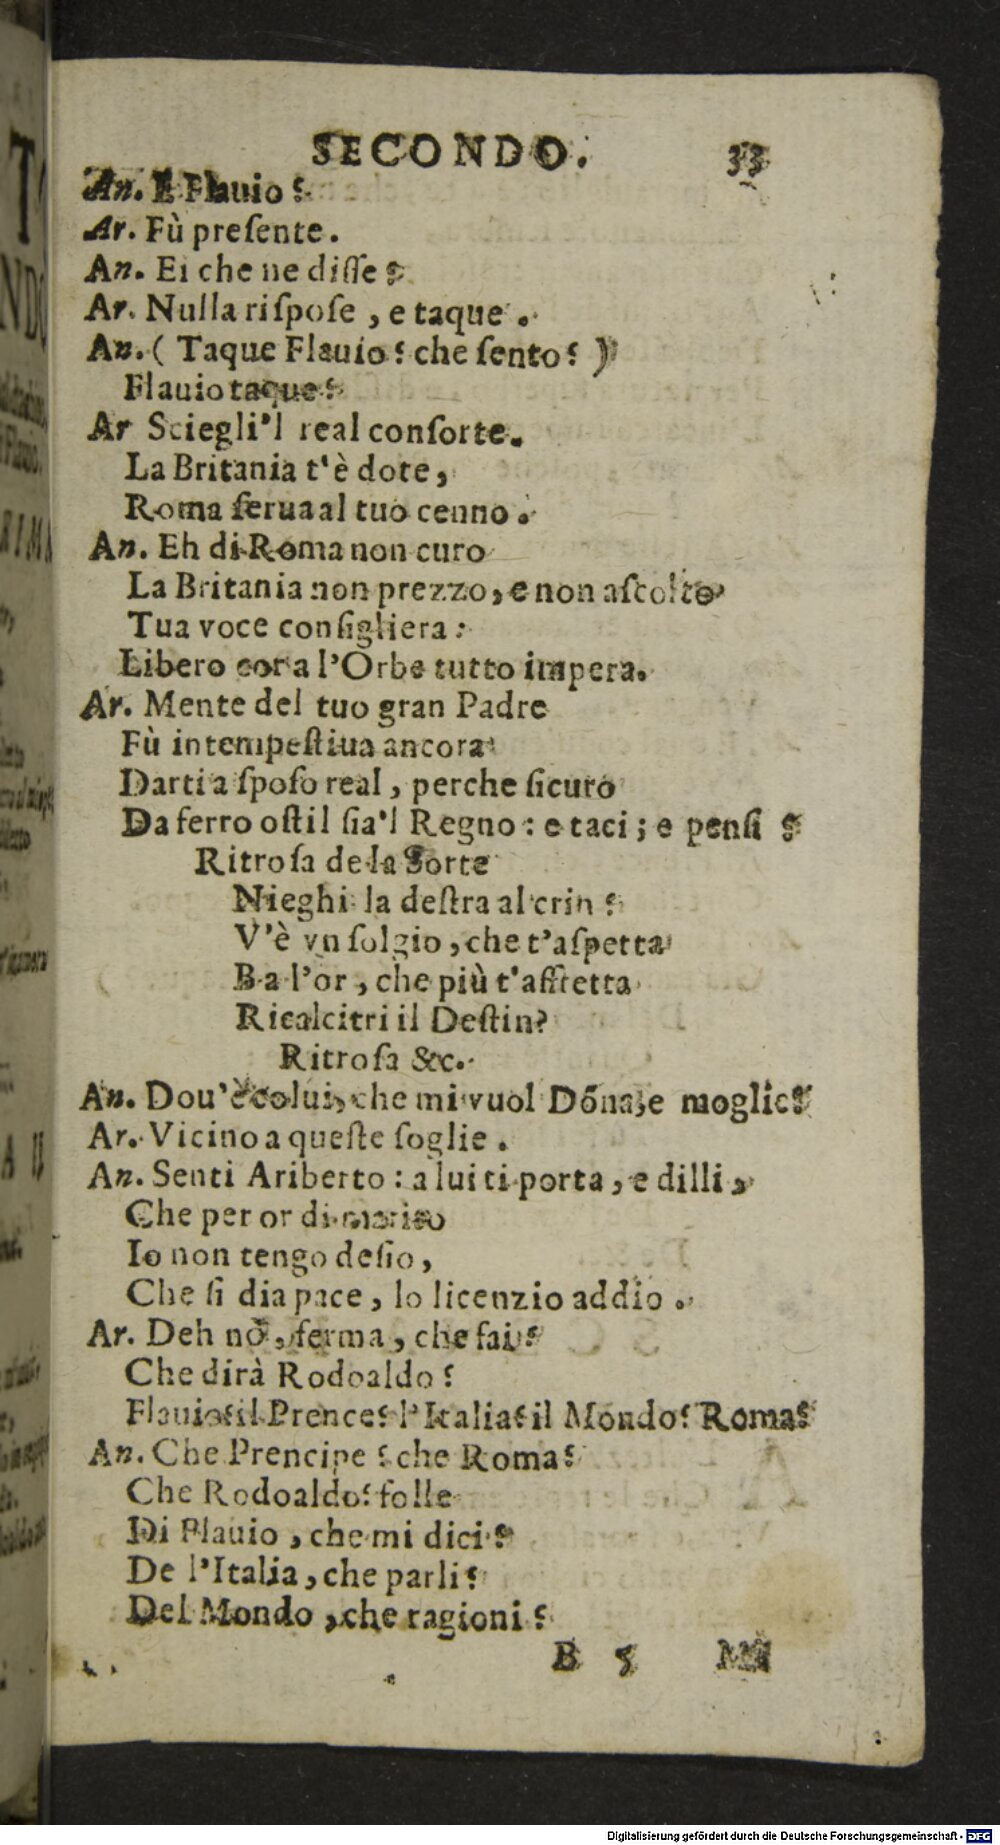 SECONDO. 33
An. E Flauio?
Ar. Fù preſente.
An. Ei che ne diſſe?
Ar. Nulla riſpoſe, e taque.
An. (Taque Flauio? che ſento?)
Flauio taque?
Ar Sciegli'l real conſorte.
La Britania t'è dote,
Roma ſerua al tuo cenno.
An. Eh di Roma non curo
La Britania non prezzo, e non aſcolto
Tua voce conſigliera:
Libero cor a l'Orbe tutto impera.
Ar. Mente del tuo gran Padre
Fù intempeſtiua ancora
Darti a ſpoſo real, perche ſicuro
Da ferro oſtil ſia'l Regno: e taci; e penſi?
Ritroſa de la Sorte
Nieghi la deſtra al crin?
V'è vn ſolgio, che t'aſpetta
B a l'or, che più t'affretta
Ricalcitri il Deſtin?
Ritroſa &c.
An. Dou'è colui, che mi vuol Dõna, e moglie?
Ar. Vicino a queſte ſoglie.
An. Senti Ariberto: a lui ti porta, e dilli,
Che per or di marito
Io non tengo deſio,
Che ſi dia pace, lo licenzio addio.
Ar. Deh nò, ferma, che fai?
Che dirà Rodoaldo?
Flauio? il Prence? l'Italia? il Mondo? Roma?
An. Che Prencipe? che Roma?
Che Rodoaldo? folle
Di Flauio, che mi dici?
De l'Italia, che parli?
Del Mondo, che ragioni?
B 5
Digitalisierung gefördert durch die Deutsche Forschungsgemeinschaft - DFG